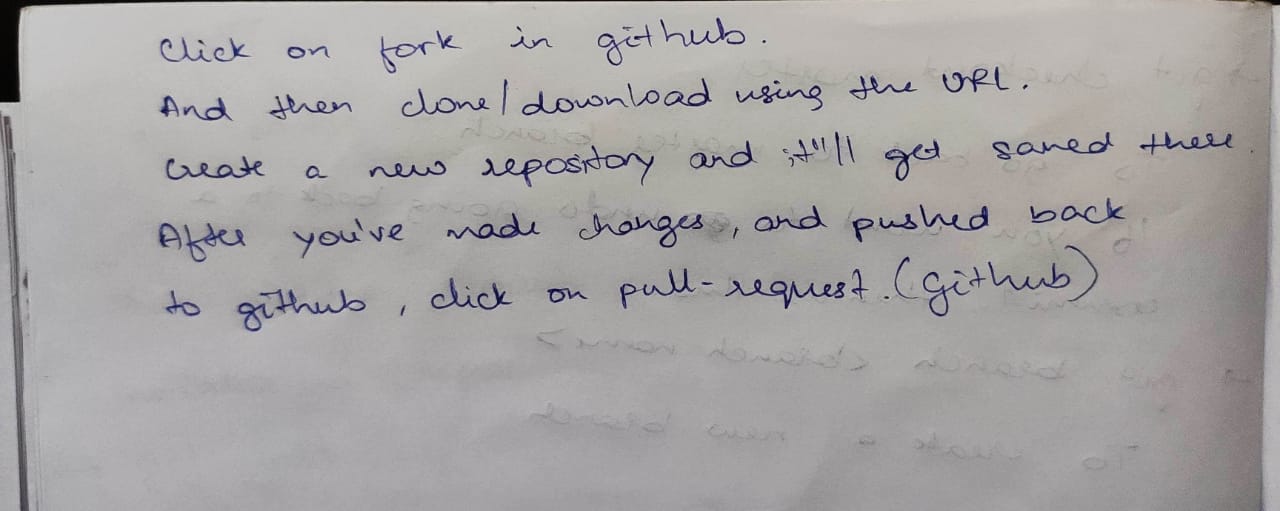 Click on fork in github.
And then clone/download using the URL.
Create a new repository and it'll get saved there.
After you've made changes, and pushed back
to github, click on pull-request. (github)